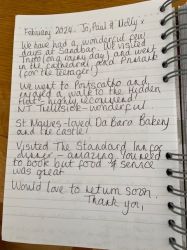 February 2024. Jo, Paul & Nelly x
We have had a wonderful few
days at Sandbar. We visited
Truro (on a rainy day) and went
in the cathedral and Primark
(for the teenager!)
We went to Portscatho and
enjoyed a walk to the Hidden
Hut - highly recommend!
NT Trelissick - wonderful
St Mawes - loved Da Bara Bakery
and the castle!
Visited The Standard Inn for
dinner - amazing. You need
to book but food & service
was great
Would love to return soon.
Thank you